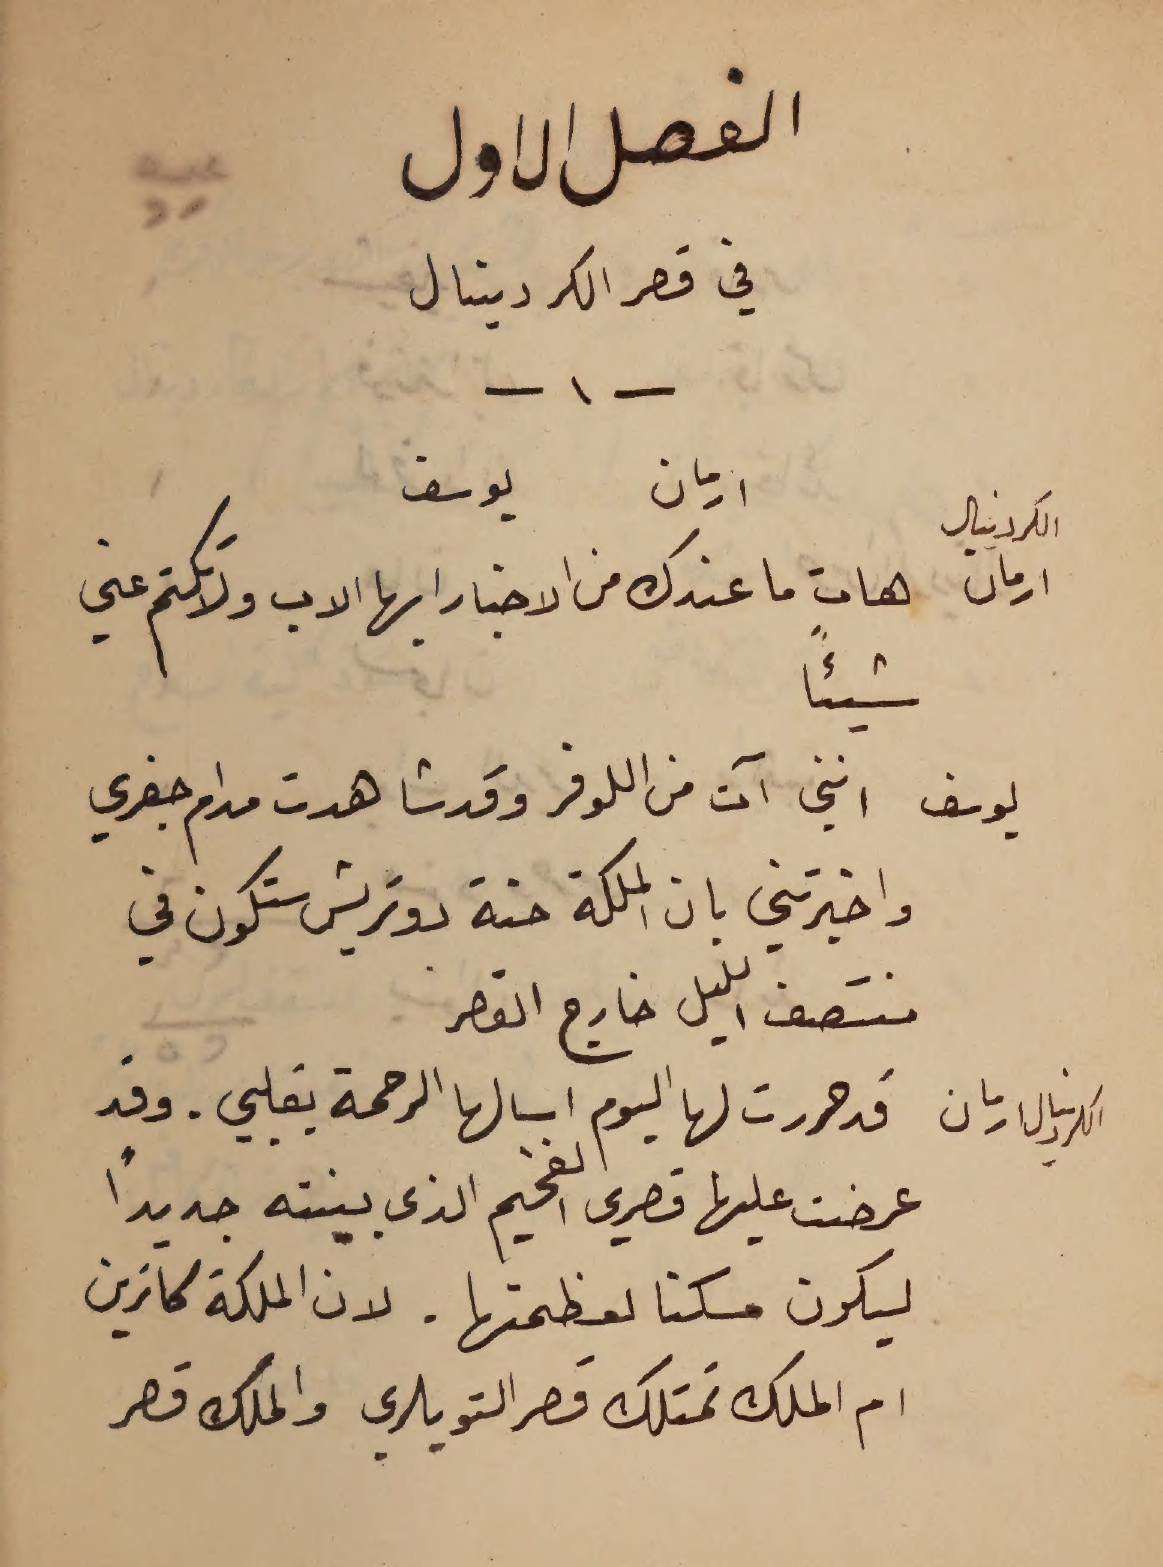 الفصل الاول
في قصر الكردينال
— ١ —
ارمان يوسف
الكردينال
ارمان هاتِ ما عندك من الاخبار ايها الاب ولا تكتم عني
شيئًا
يوسف انني آت من اللوفر وقد شاهدت مدام جفري
واخبرتني بان الملكة حنة دوتريش ستكون في
منتصف الليل خارج القصر
الكردينال ارمان قد حررت لها اليوم اسالها الرحمة بقلبي . وقد
عرضت عليها قصري الفخيم الذي بنيته جديدًا
ليكون مسكنا لعظمتها . لان الملكة كاترين
ام الملك تمتلك قصر التويلري والملك قصر